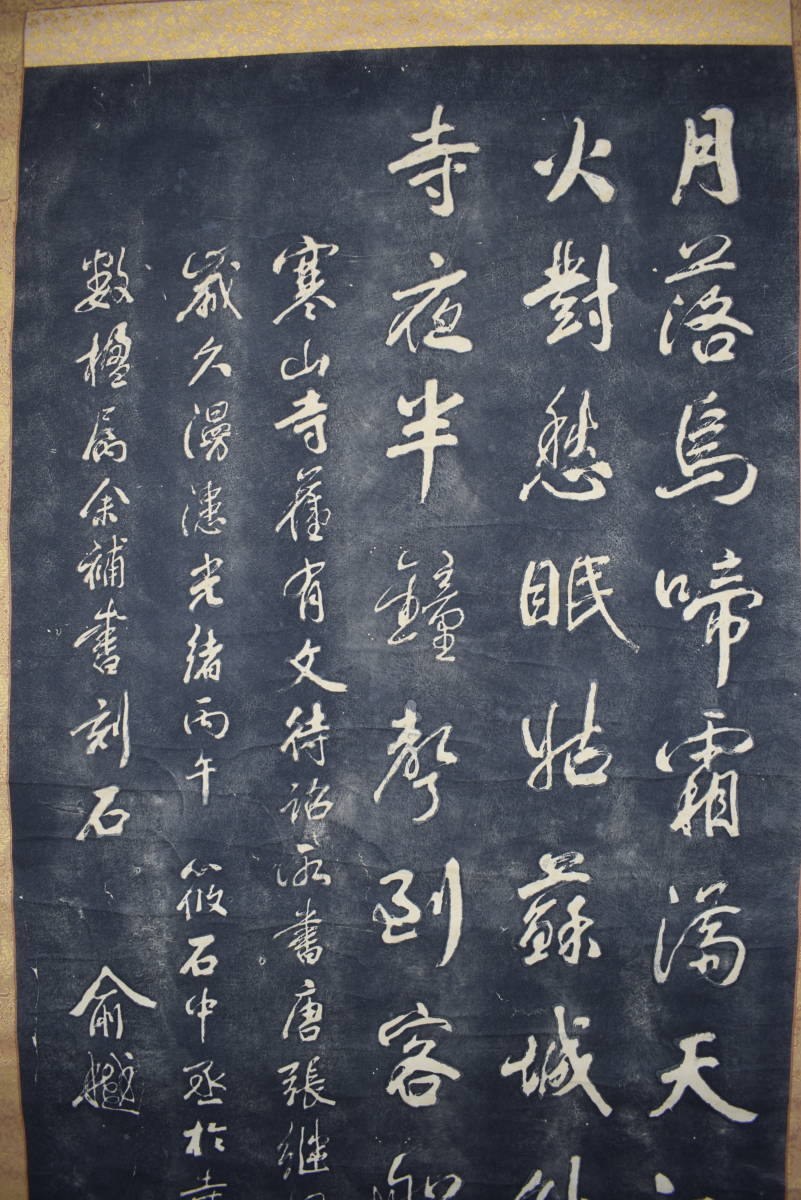 月落烏啼霜滿天
火對愁眠姑蘇城外
寺夜半鐘聲到客船
寒山寺舊有文待詔所書唐張繼
歲久漫漶光緒丙午筱石中丞於寺
數楹屬余補書刻石俞樾